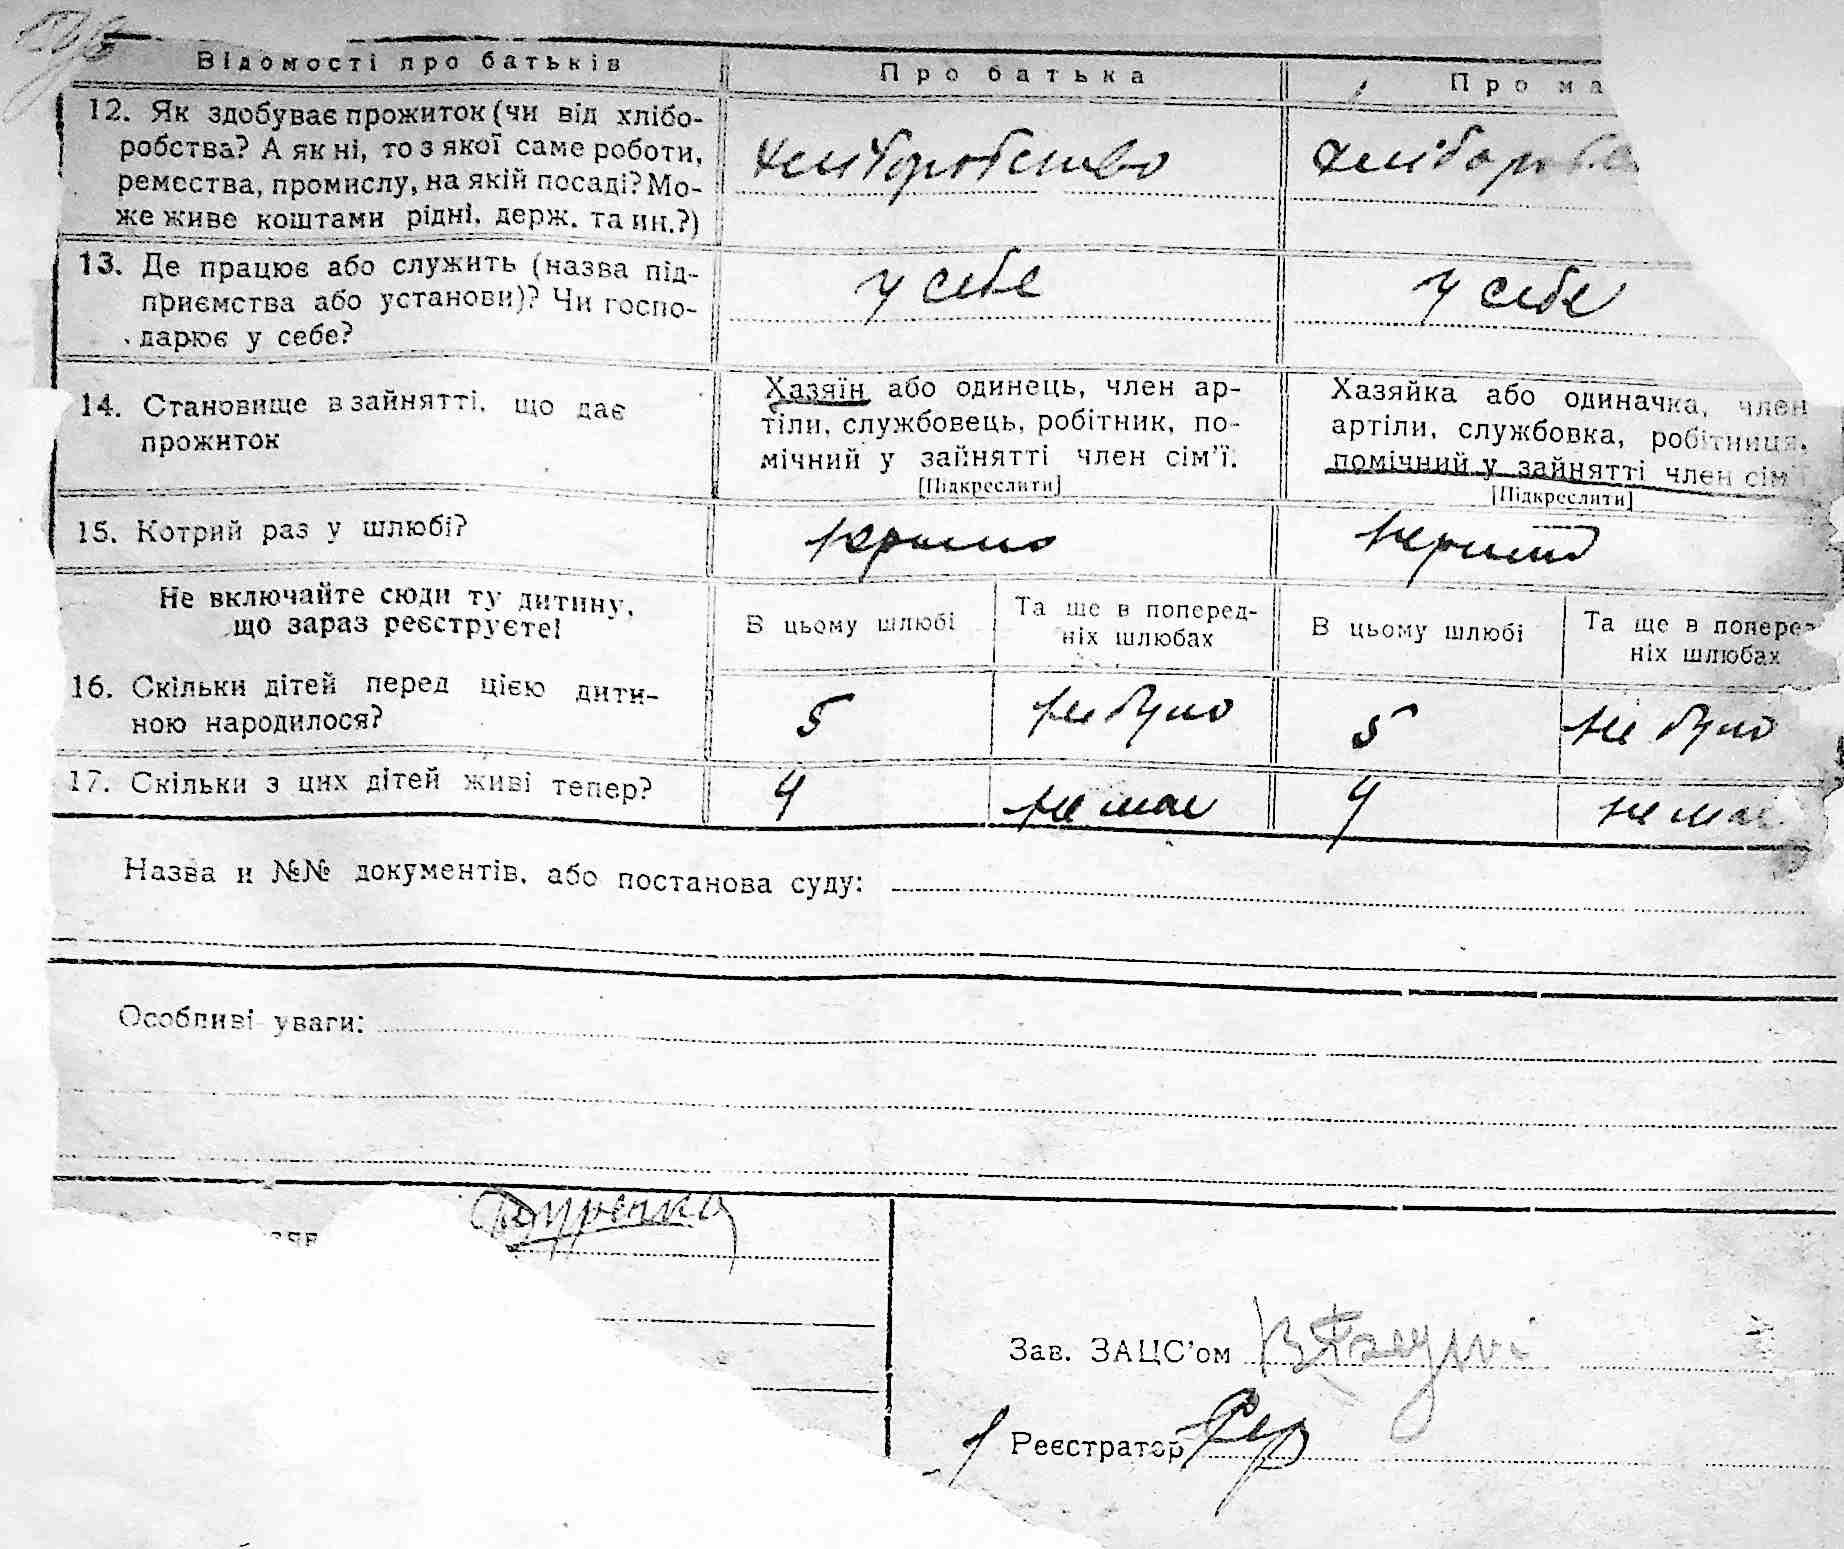 Відомості про батьків
Про батька
Про ма
12. Як здобуває прожиток (чи від хлібо-
робства? А як ні, то з якої саме роботи,
ремества, промислу, на якій посаді? Мо-
же живе коштами рідні, держ. та ин.?)
хліборобство
хліборобс
13. Де працює або служить (назва під-
приємства або установи)? Чи госпо-
дарює у себе?
у себе
у себе
14. Становище в зайнятті, що дає
прожиток
Хазяїн або одинець, член ар-
тіли, службовець, робітник, по-
мічний у зайнятті член сім'ї.
[Підкреслити]
Хазяйка або одиначка, член
артіли, службовка, робітниця,
помічний у зайнятті член сім'ї
[Підкреслити]
15. Котрий раз у шлюбі?
Не включайте сюди ту дитину,
що зараз реєструєте!
В цьому шлюбі
Та ще в поперед-
ніх шлюбах
В цьому шлюбі
Та ще в поперед-
ніх шлюбах
16. Скільки дітей перед цією дити-
ною народилося?
5
не було
5
не було
17. Скільки з цих дітей живі тепер?
4
не має
4
не має
Назва и №№ документів, або постанова суду:
Особливі уваги:
Зав. ЗАЦС'ом
Реєстратор